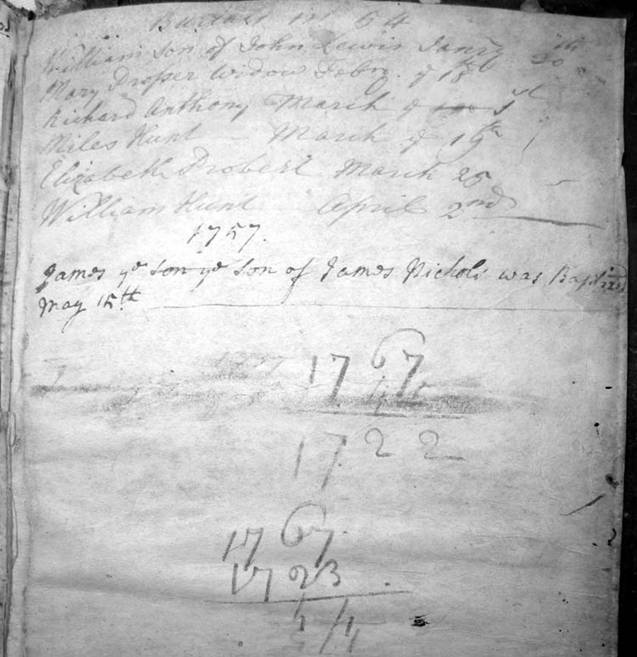 Burials in 64
William Son of John Lewis Janry 30th
Mary Prosser Widow Febry. ye 18th
Richard Anthony March ye 1st
Miles Hunt March ye 19th
Elizabeth Probert March 25
William Hunt April 2nd
1757.
James ye son ye son of James Nichols was Baptized
May 15th
1767
1722
1767
1723
44